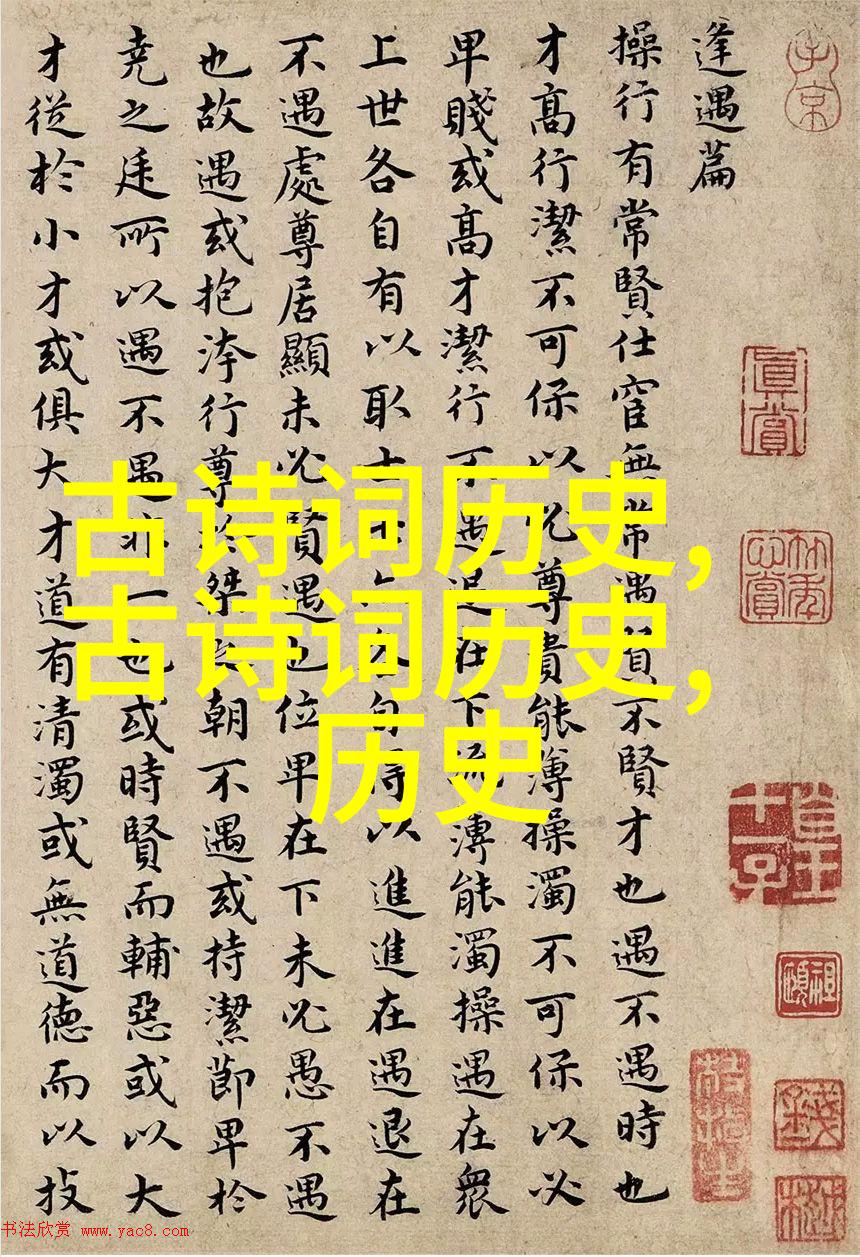 逢遇篇
操行有常賢仕宦無常遇賢不賢才也遇不遇時也
才高行潔不可保以必尊貴能薄操濁不可保以必
卑賤或高才潔行不遇退在下流薄能濁操遇在衆
上世各自有以取士士亦各自得以進進在遇退在
不遇處尊居顯未必賢遇也位卑在下未必愚不遇
也故遇或抱洿行尊於桀之朝不遇或持潔節卑於
堯之廷所以遇不遇非一也或時賢而輔惡或以大
才從於小才或俱大才道有清濁或無道德而以技
古诗词历史,
古诗词历史,
历史
真賞
书法欣赏 www.yac8.com